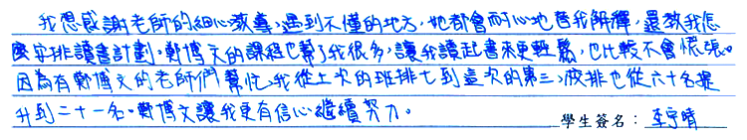 我想感謝老師的細心教導,遇到不懂的地方,她都會耐心地替我解釋,還教我怎
麼安排讀書計劃,鄭博文的課程也幫了我很多,讓我讀起書來更輕鬆,也比較不會慌張。
因為有鄭博文的老師們幫忙,我從上次的班排七到這次的第三,校排也從六十名提
升到二十一名。鄭博文讓我更有信心繼續努力。
學生簽名: